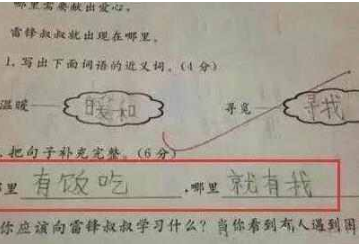 哪里需要献出爱心,
雷锋叔叔就出现在哪里。
1. 写出下面词语的近义词。(4分)
温暖 暖和 寻觅 寻找
.把句子补充完整。(6分)
里 有饭吃 ,哪里 就有我
你应该向雷锋叔叔学习什么?当你看到有人遇到困